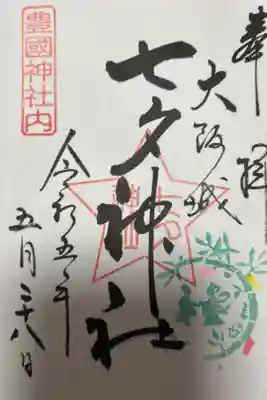 奉拝
大阪城
七夕神社
豊國神社内
令和五年
五月二十八日